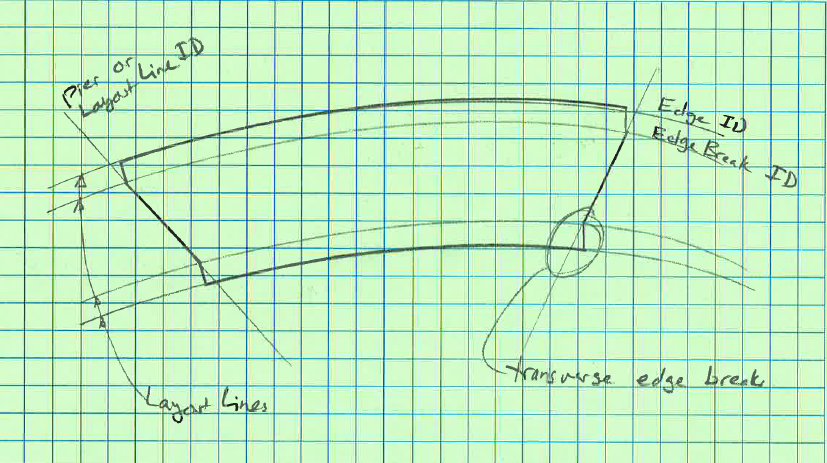 Pier or
Layout Line ID
Edge ID
Edge Break ID
transverse edge break
Layout Lines